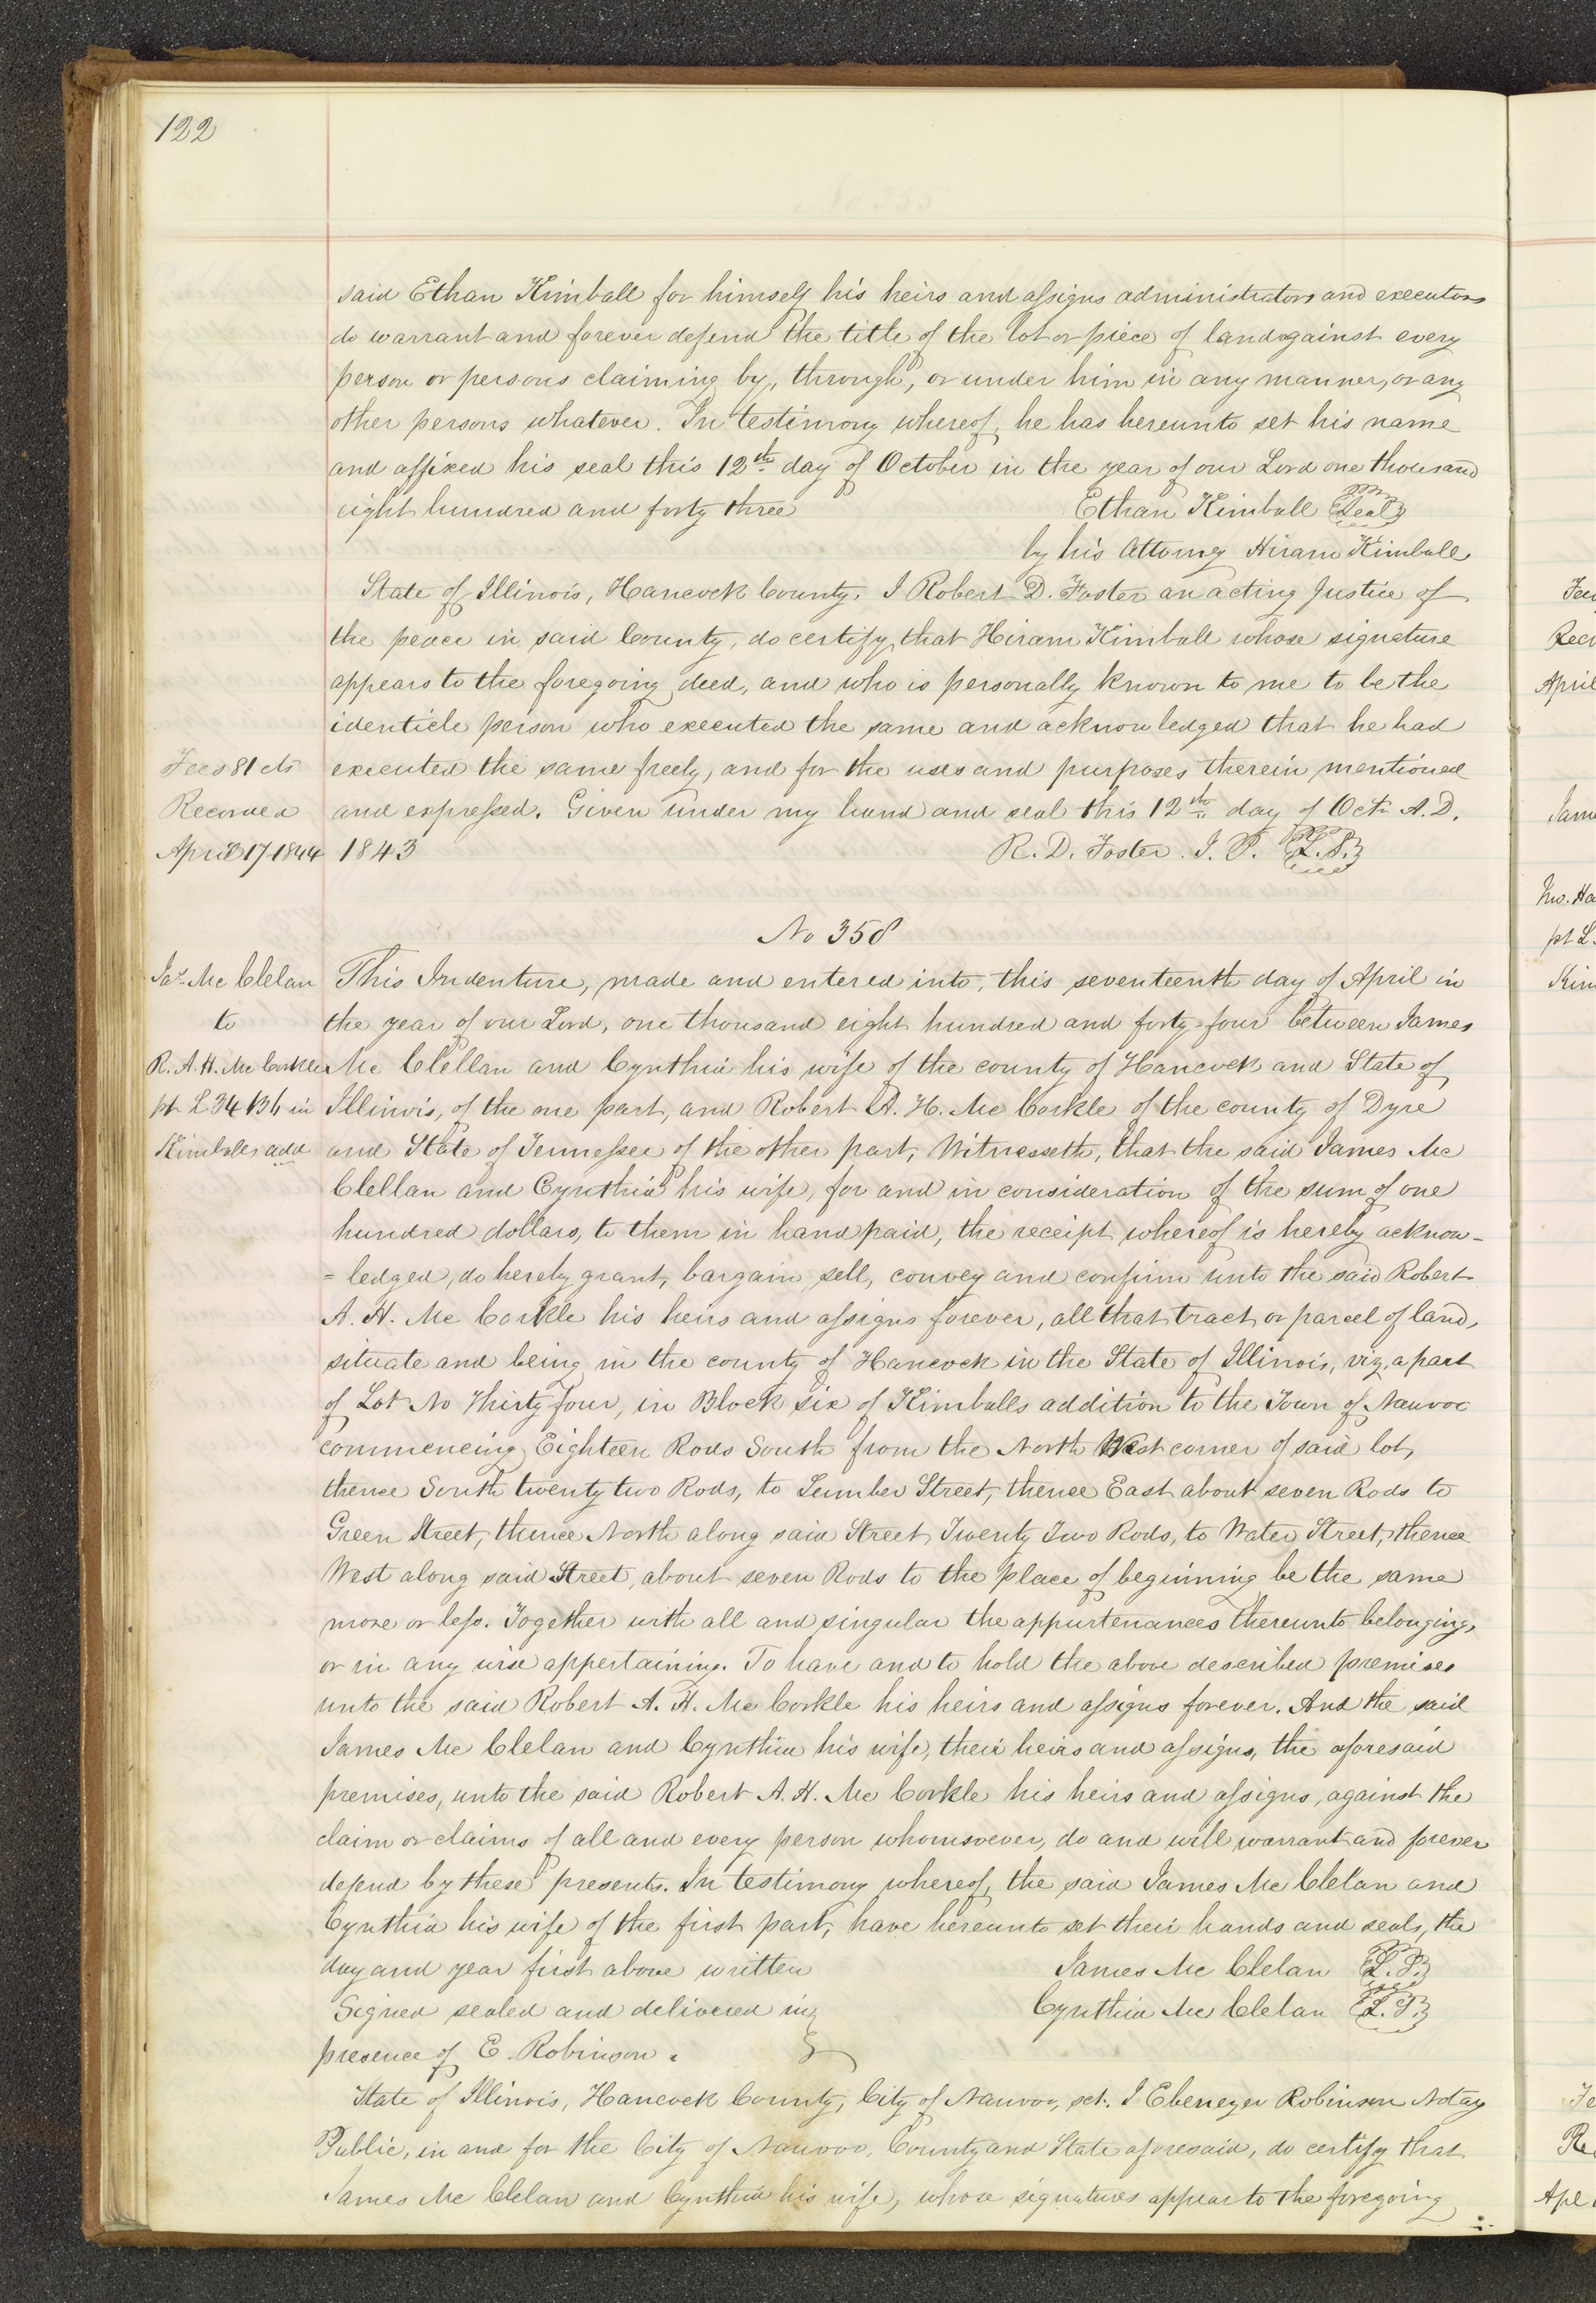 122
said Ethan Kimball for himself his heirs and assigns administrators and executors
do warrant and forever defend the title of the lot or piece of land against every
person or persons claiming by, through, or under him in any manner, or any
other persons whatever. In testimony whereof, he has hereunto set his name
and affixed his seal this 12th day of October in the year of our Lord one thousand
eight hundred and forty three Ethan Kimball Seal
by his Attorney Hiram Kimball
State of Illinois, Hancock County. I Robert D. Foster an acting Justice of
the peace in said County, do certify, that Hiram Kimball whose signature
appears to the foregoing deed, and who is personally known to me to be the
identicle person who executed the same and acknowledged that he had
Fees 81 cts executed the same freely, and for the uses and purposes therein mentioned
Recorded and expressed. Given under my hand and seal this 12th day of Oct. A.D.
April 17 1844 1843 R. D. Foster. J. P. L.S.
No 358
Jas. Mc Clelan This Indenture, made and entered into, this seventeenth day of April in
to the year of our Lord, one thousand eight hundred and forty four between James
R. A. H. Mc Corkle Mc Clellan and Cynthia his wife of the county of Hancock and State of
pt L 34 B 6 in Illinois, of the one part, and Robert A. H. Mc Corkle of the county of Dyre
Kimballs add and State of Tennessee of the other part, Witnesseth, that the said James Mc
Clellan and Cynthia his wife, for and in consideration of the sum of one
hundred dollars, to them in hand paid, the receipt whereof is hereby acknow-
= ledged, do hereby grant, bargain, sell, convey and confirm unto the said Robert
A. H. Mc Corkle his heirs and assigns forever, all that tract or parcel of land,
situate and being in the county of Hancock in the State of Illinois, viz, a part
of Lot No Thirty four, in Block six of Kimballs addition to the Town of Nauvoo
commencing Eighteen Rods South from the North West corner of said lot,
thence South twenty two Rods, to Lumber Street, thence East about seven Rods to
Green Street, thence North along said Street Twenty Two Rods, to Water Street, thence
West along said Street, about seven Rods to the place of beginning be the same
more or less. Together with all and singular the appurtenances thereunto belonging,
or in any wise appertaining. To have and to hold the above described premises
unto the said Robert A. H. Mc Corkle his heirs and assigns forever. And the said
James Mc Clelan and Cynthia his wife, their heirs and assigns, the aforesaid
premises, unto the said Robert A. H. Mc Corkle his heirs and assigns, against the
claim or claims of all and every person whomsoever, do and will warrant and forever
defend by these presents. In testimony whereof, the said James Mc Clelan and
Cynthia his wife of the first part, have hereunto set their hands and seals, the
day and year first above written James Mc Clelan L.S.
Signed sealed and delivered in Cynthia Mc Clelan L.S.
presence of E. Robinson.
State of Illinois, Hancock County, City of Nauvoo, sct. I Ebenezer Robinson Notary
Public, in and for the City of Nauvoo, County and State aforesaid, do certify that
James Mc Clelan and Cynthia his wife, whose signatures appear to the foregoing